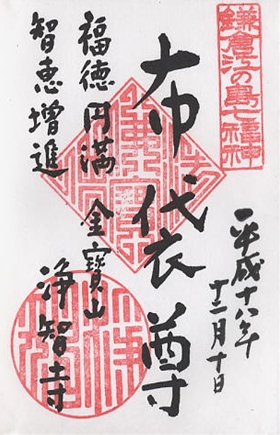 鎌倉江の島七福神
平成十八年
十二月十日
布袋尊
金寶山
浄智寺
福徳円満
智恵増進